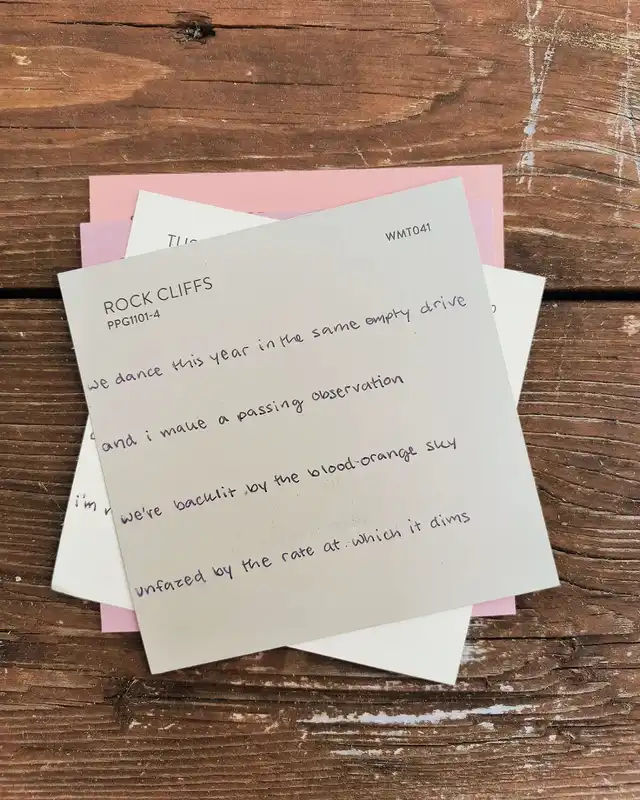 ROCK CLIFFS
PPG1101-4
WMT041
we dance this year in the same empty drive
and i make a passing observation
we're backlit by the blood-orange sky
unfazed by the rate at which it dims
i'm